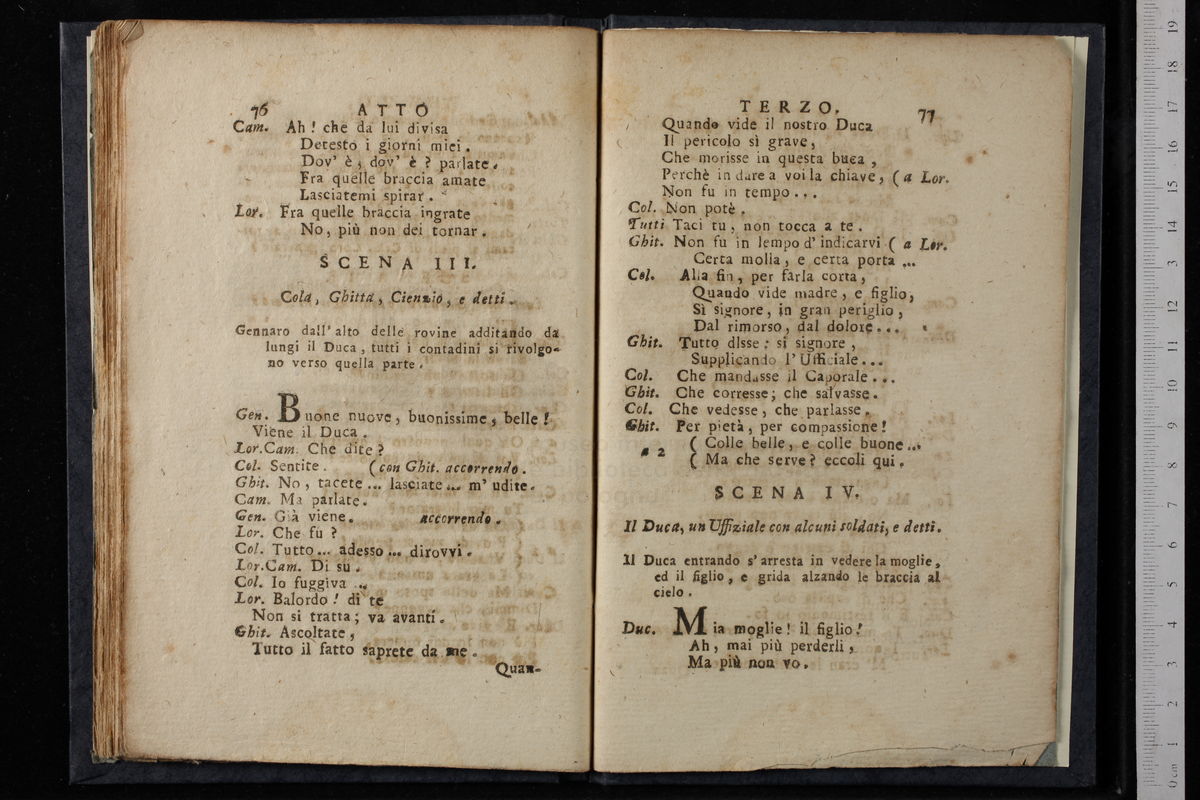 76 ATTO
Cam. Ah! che da lui divisa
Detesto i giorni miei.
Dov' è, dov' è? parlate.
Fra quelle braccia amate
Lasciatemi spirar.
Lor. Fra quelle braccia ingrate
No, più non dei tornar.
SCENA III.
Cola, Ghitta, Cienzio, e detti.
Gennaro dall' alto delle rovine additando da
lungi il Duca, tutti i contadini si rivolgo-
no verso quella parte.
Gen. Buone nuove, buonissime, belle!
Viene il Duca.
Lor.Cam. Che dite?
Col. Sentite. (con Ghit. accorrendo.
Ghit. No, tacete... lasciate... m' udite.
Cam. Ma parlate.
Gen. Già viene. accorrendo.
Lor. Che fu?
Col. Tutto... adesso... dirovvi.
Lor.Cam. Di su.
Col. Io fuggiva ...
Lor. Balordo! di te
Non si tratta; va avanti.
Ghit. Ascoltate,
Tutto il fatto saprete da me.
Quan-
TERZO. 77
Quando vide il nostro Duca
Il pericolo sì grave,
Che morisse in questa buca,
Perchè in dare a voi la chiave, (a Lor.
Non fu in tempo...
Col. Non potè.
Tutti Taci tu, non tocca a te.
Ghit. Non fu in lempo d' indicarvi (a Lor.
Certa molla, e certa porta ...
Col. Alla fin, per farla corta,
Quando vide madre, e figlio,
Sì signore, in gran periglio,
Dal rimorso, dal dolore...
Ghit. Tutto disse: si signore,
Supplicando l' Ufficiale...
Col. Che mandasse il Caporale...
Ghit. Che corresse; che salvasse.
Col. Che vedesse, che parlasse.
Ghit. Per pietà, per compassione!
a 2 ( Colle belle, e colle buone...
( Ma che serve? eccoli qui.
SCENA IV.
Il Duca, un Uffiziale con alcuni soldati, e detti.
Il Duca entrando s' arresta in vedere la moglie,
ed il figlio, e grida alzando le braccia al
cielo.
Duc. Mia moglie! il figlio!
Ah, mai più perderli,
Ma più non vo.
0 cm 1 2 3 4 5 6 7 8 9 10 11 12 13 14 15 16 17 18 19